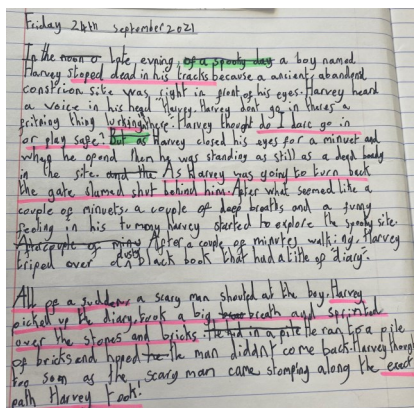 Friday 24th september 2021
In the noon o late evning, of a spooty day a boy named
Harvey stoped dead in his tracks because a ancient, abandend
constrion site was right in front of his eyes. Harvey heard
a voice in his head "Harvey. Harvey dont go in thares a
fritning thing lurking these". Harvey thought do I dare go in
or play safe. But as Harvey closed his eyes for a minuet and
when he opend them he was standing as still as a dead body
in the site. and the As Harvey was going to turn back
the gate slamed shut behind him. After what seemed like a
couple of minuets, a couple of deep breaths and a funny
feeling in his tummy harvey started to explore the spooky site.
After couple of miny After a couple of minutes walking, Harvey
triped over a dusty black book that had a title of "diary".
All of a sudden a scary man shouted at the boy. Harvey
picked up the diary, took a big breath and sprinted
over the stones and bricks. He hid in a pile He ran to a pile
of bricks and hoped the man diddn't come back. Harvey though
too soon as the scary man came stomping along the exact
path Harvey took.